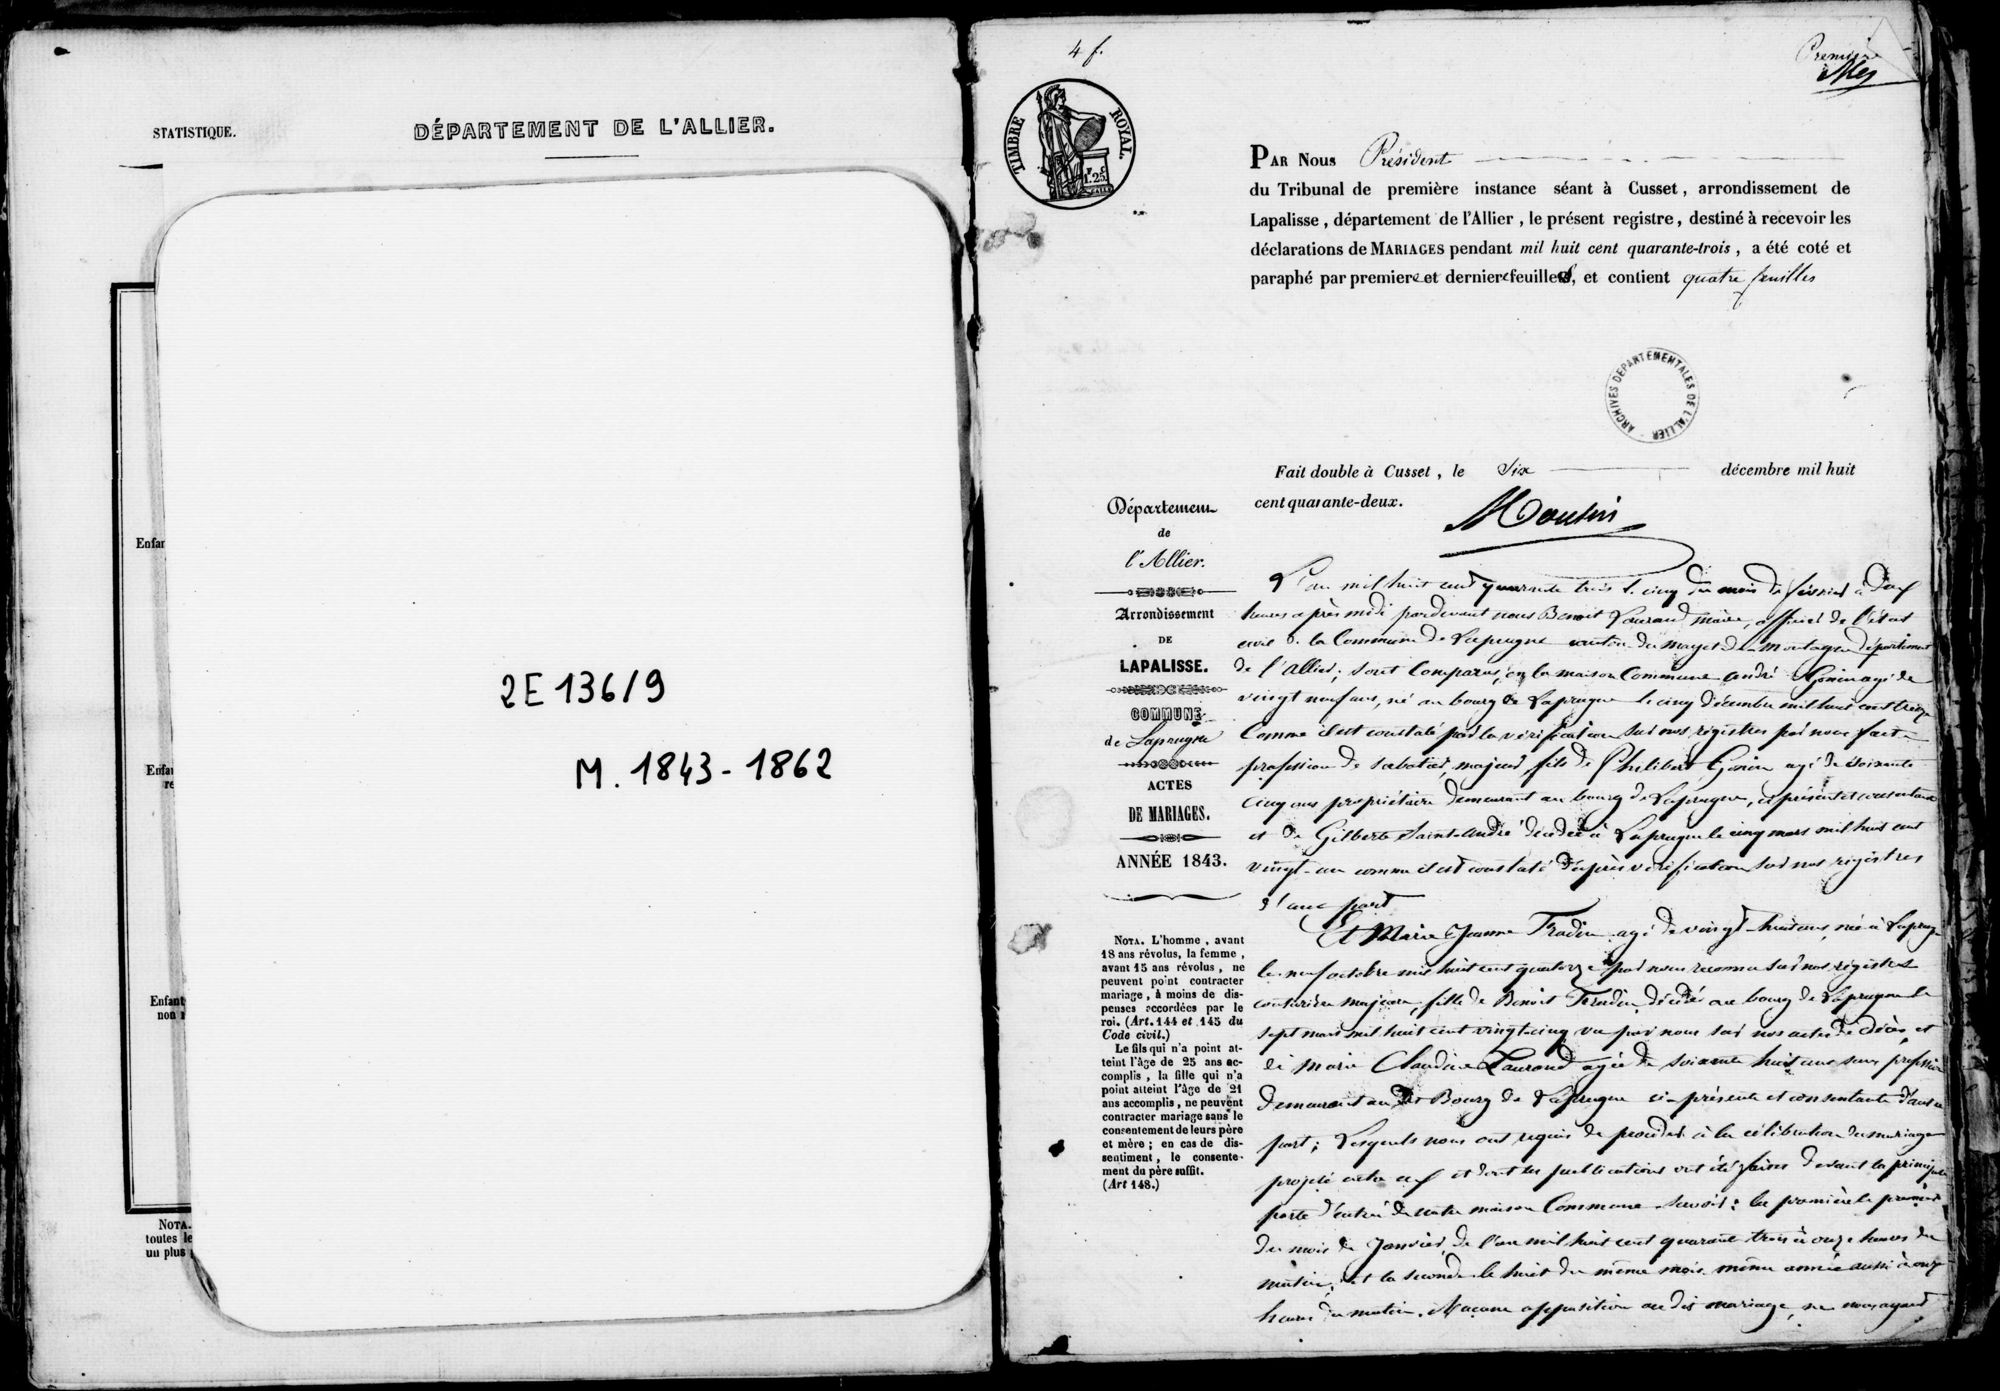 STATISTIQUE.
DÉPARTEMENT DE L'ALLIER.
Enfan
Enfan
re
Enfant
non r
NOTA.
toutes le
un plus
2E 136/9
M. 1843 - 1862
4 f.
Première
TIMBRE ROYAL.
1.25
PAR NOUS Président
du Tribunal de première instance séant à Cusset, arrondissement de
Lapalisse, département de l'Allier, le présent registre, destiné à recevoir les
déclarations de MARIAGES pendant mil huit cent quarante-trois, a été coté et
paraphé par premiere et derniere feuilles, et contient quatre feuilles
ARCHIVES DÉPARTEMENTALES DE L'ALLIER
Fait double à Cusset, le Six décembre mil huit
cent quarante-deux.
Département
de
l'Allier.
Arrondissement
DE
LAPALISSE.
COMMUNE
de Laprugne
ACTES
DE MARIAGES.
ANNÉE 1843.
NOTA. L'homme, avant
18 ans révolus, la femme,
avant 15 ans révolus, ne
peuvent point contracter
mariage, à moins de dis-
penses accordées par le
roi. (Art. 144 et 145 du
Code civil.)
Le fils qui n'a point at-
teint l'âge de 25 ans ac-
complis, la fille qui n'a
point atteint l'âge de 21
ans accomplis, ne peuvent
contracter mariage sans le
consentement de leurs père
et mère; en cas de dis-
sentiment, le consente-
ment du père suffit.
(Art 148.)
L'an mil huit cent quarante trois le cinq du mois de février à deux
heures après midi pardevant nous Benoit Laurand maire, officier de l'état
civil de la Commune de Laprugne canton du mayet de montagne département
de l'Allier; sont Comparus, en la maison Commune andré Gonin agé de
vingt neuf ans, né au bourg de Laprugne le cinq décembre mil huit cent treize
Comme il est constaté par la vérification sur nos régistres par nous faite
profession de sabotier, majeur, fils de Philibert Gonin agé de soixante
cinq ans propriétaire demeurant au bourg de Laprugne, ci présent et consentant
et de Gilberte Saint-André décédée à Laprugne le cinq mars mil huit cent
vingt-un comme il est constaté d'après vérification sur nos régistres
d'une part
Et Marie Jeanne Fradin agé de vingt-huit ans, née à Laprugne
le neuf octobre mil huit cent quatorze par nous reconnu sur nos régistres
couturière majeure, fille de Benoit Fradin décédé au bourg de Laprugne le
sept mars mil huit cent vingt-cinq vu par nous sur nos actes de décès, et
de marie Claudine Laurand agée de soixante huit ans sans profession
demeurant au dit Bourg de Laprugne ci-présente et consentante d'autre
part; Lesquels nous ont requis de procéder à la célébration du mariage
projeté entre eux et dont les publications ont été faites devant la principale
porte d'entrée de notre maison Commune Savoir: la première le premier
du mois de Janvier de l'an mil huit cent quarante trois à onze heures du
matin, et la seconde le huit du même mois même année aussi à onze
heures du matin. Aucune opposition au dit mariage, ne nous ayant